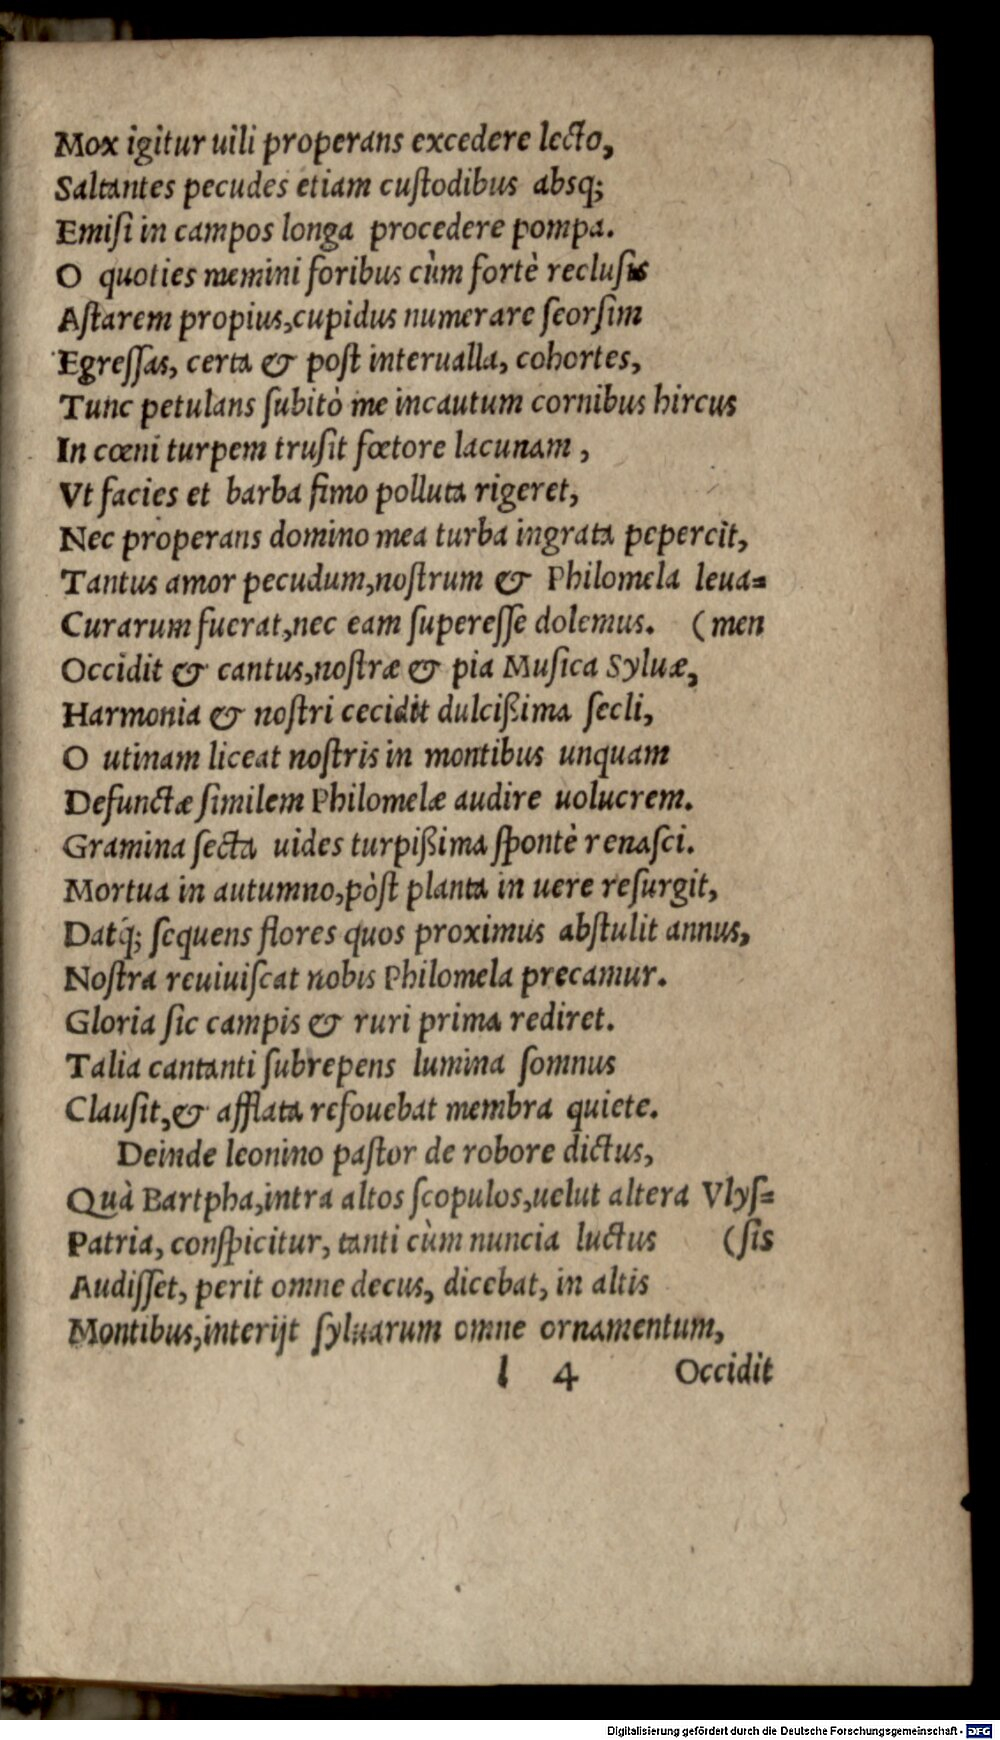 Mox igitur uili properans excedere lecto,
Saltantes pecudes etiam cuſtodibus absq;
Emiſi in campos longa procedere pompa.
O quoties memini foribus cùm fortè recluſis
Aſtarem propius,cupidus numerare ſeorſim
Egreſſas, certa & poſt interualla, cohortes,
Tunc petulans ſubitò me incautum cornibus hircus
In cœni turpem truſit fœtore lacunam ,
Vt facies et barba fimo polluta rigeret,
Nec properans domino mea turba ingrata pepercit,
Tantus amor pecudum,noſtrum & Philomela leua⸗
Curarum fuerat,nec eam ſupereſſe dolemus. (men
Occidit & cantus,noſtræ & pia Muſica Syluæ,
Harmonia & noſtri cecidit dulcißima ſecli,
O utinam liceat noſtris in montibus unquam
Defunctæ ſimilem Philomelæ audire uolucrem.
Gramina ſecta uides turpißima ſpontè renaſci.
Mortua in autumno,pòſt planta in uere reſurgit,
Datq́; ſequens flores quos proximus abſtulit annus,
Noſtra reuiuiſcat nobis Philomela precamur.
Gloria ſic campis & ruri prima rediret.
Talia cantanti ſubrepens lumina ſomnus
Clauſit,& afflata refouebat membra quiete.
Deinde leonino paſtor de robore dictus,
Quà Bartpha,intra altos ſcopulos,uelut altera Vlyſ⸗
Patria, conſpicitur, tanti cùm nuncia luctus (ſis
Audiſſet, perit omne decus, dicebat, in altis
Montibus,interijt ſyluarum omne ornamentum,
l 4 Occidit
Digitalisierung gefördert durch die Deutsche Forschungsgemeinschaft - DFG